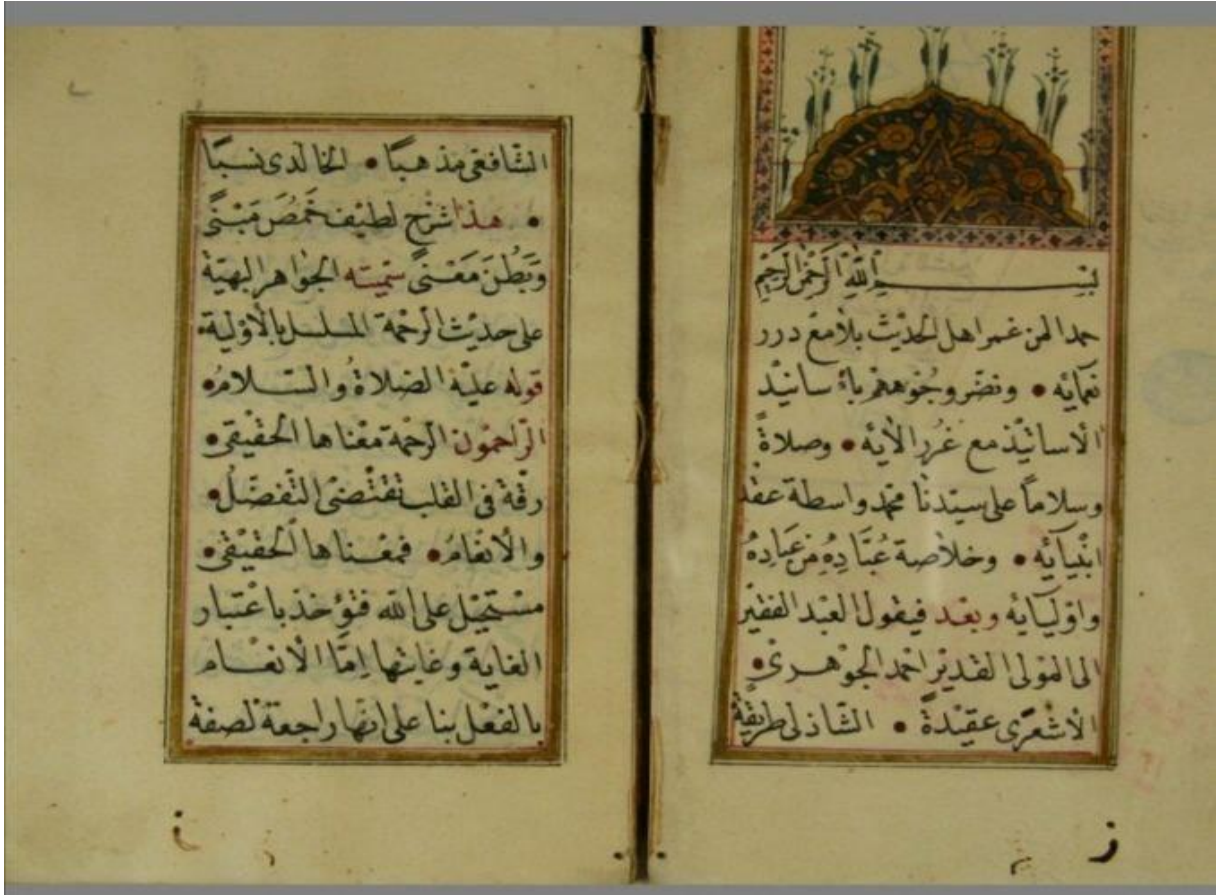 بِسْمِ اللهِ الرَّحْمٰنِ الرَّحِيْمِ
حمدا لمن غمر اهل الحديْث بلامع درر
نعمائه • ونضر وجُوههمْ باء سانيْد
الاساتيْذ مع غُرر الأيه • وصلاةً
وسلامًا على سيّدنا محمّد واسطة عقد
انبيآئه • وخلاصة عُبَّادِهِ مِنْ عِبَادِهُ
واوْليآئه وبعْد فيقول العبْد الفقيْر
الى المولى القديْر احْمد الجوْهرىْ •
الأشعرَى عقيْدةً • الشّاذلى طريقةً
الشّافعى مذهبًا • الخالدى نسبًا
• هذا شرْح لطيْف خمُصَ مَبْنًى
وَبَطُنَ مَعْنًى سمّيْته الجواهر البهيّة
على حديْث الرحْمة المسلسل بالأوّلية •
قوله عليْه الصّلاةُ والسّلامُ •
الرّاحمُون الرحْمة معْناها الحقيْقى •
رقّة فى القلب تقْتضى التّفضّلُ •
والأنْعامُ • فمعْناها الحقيْقى •
مسْتحيْل على الله فتؤخذ باعْتبار
الغاية وغايتها اِمّا الأنعام
بالفعْل بنا على انّها راجعة لصفة